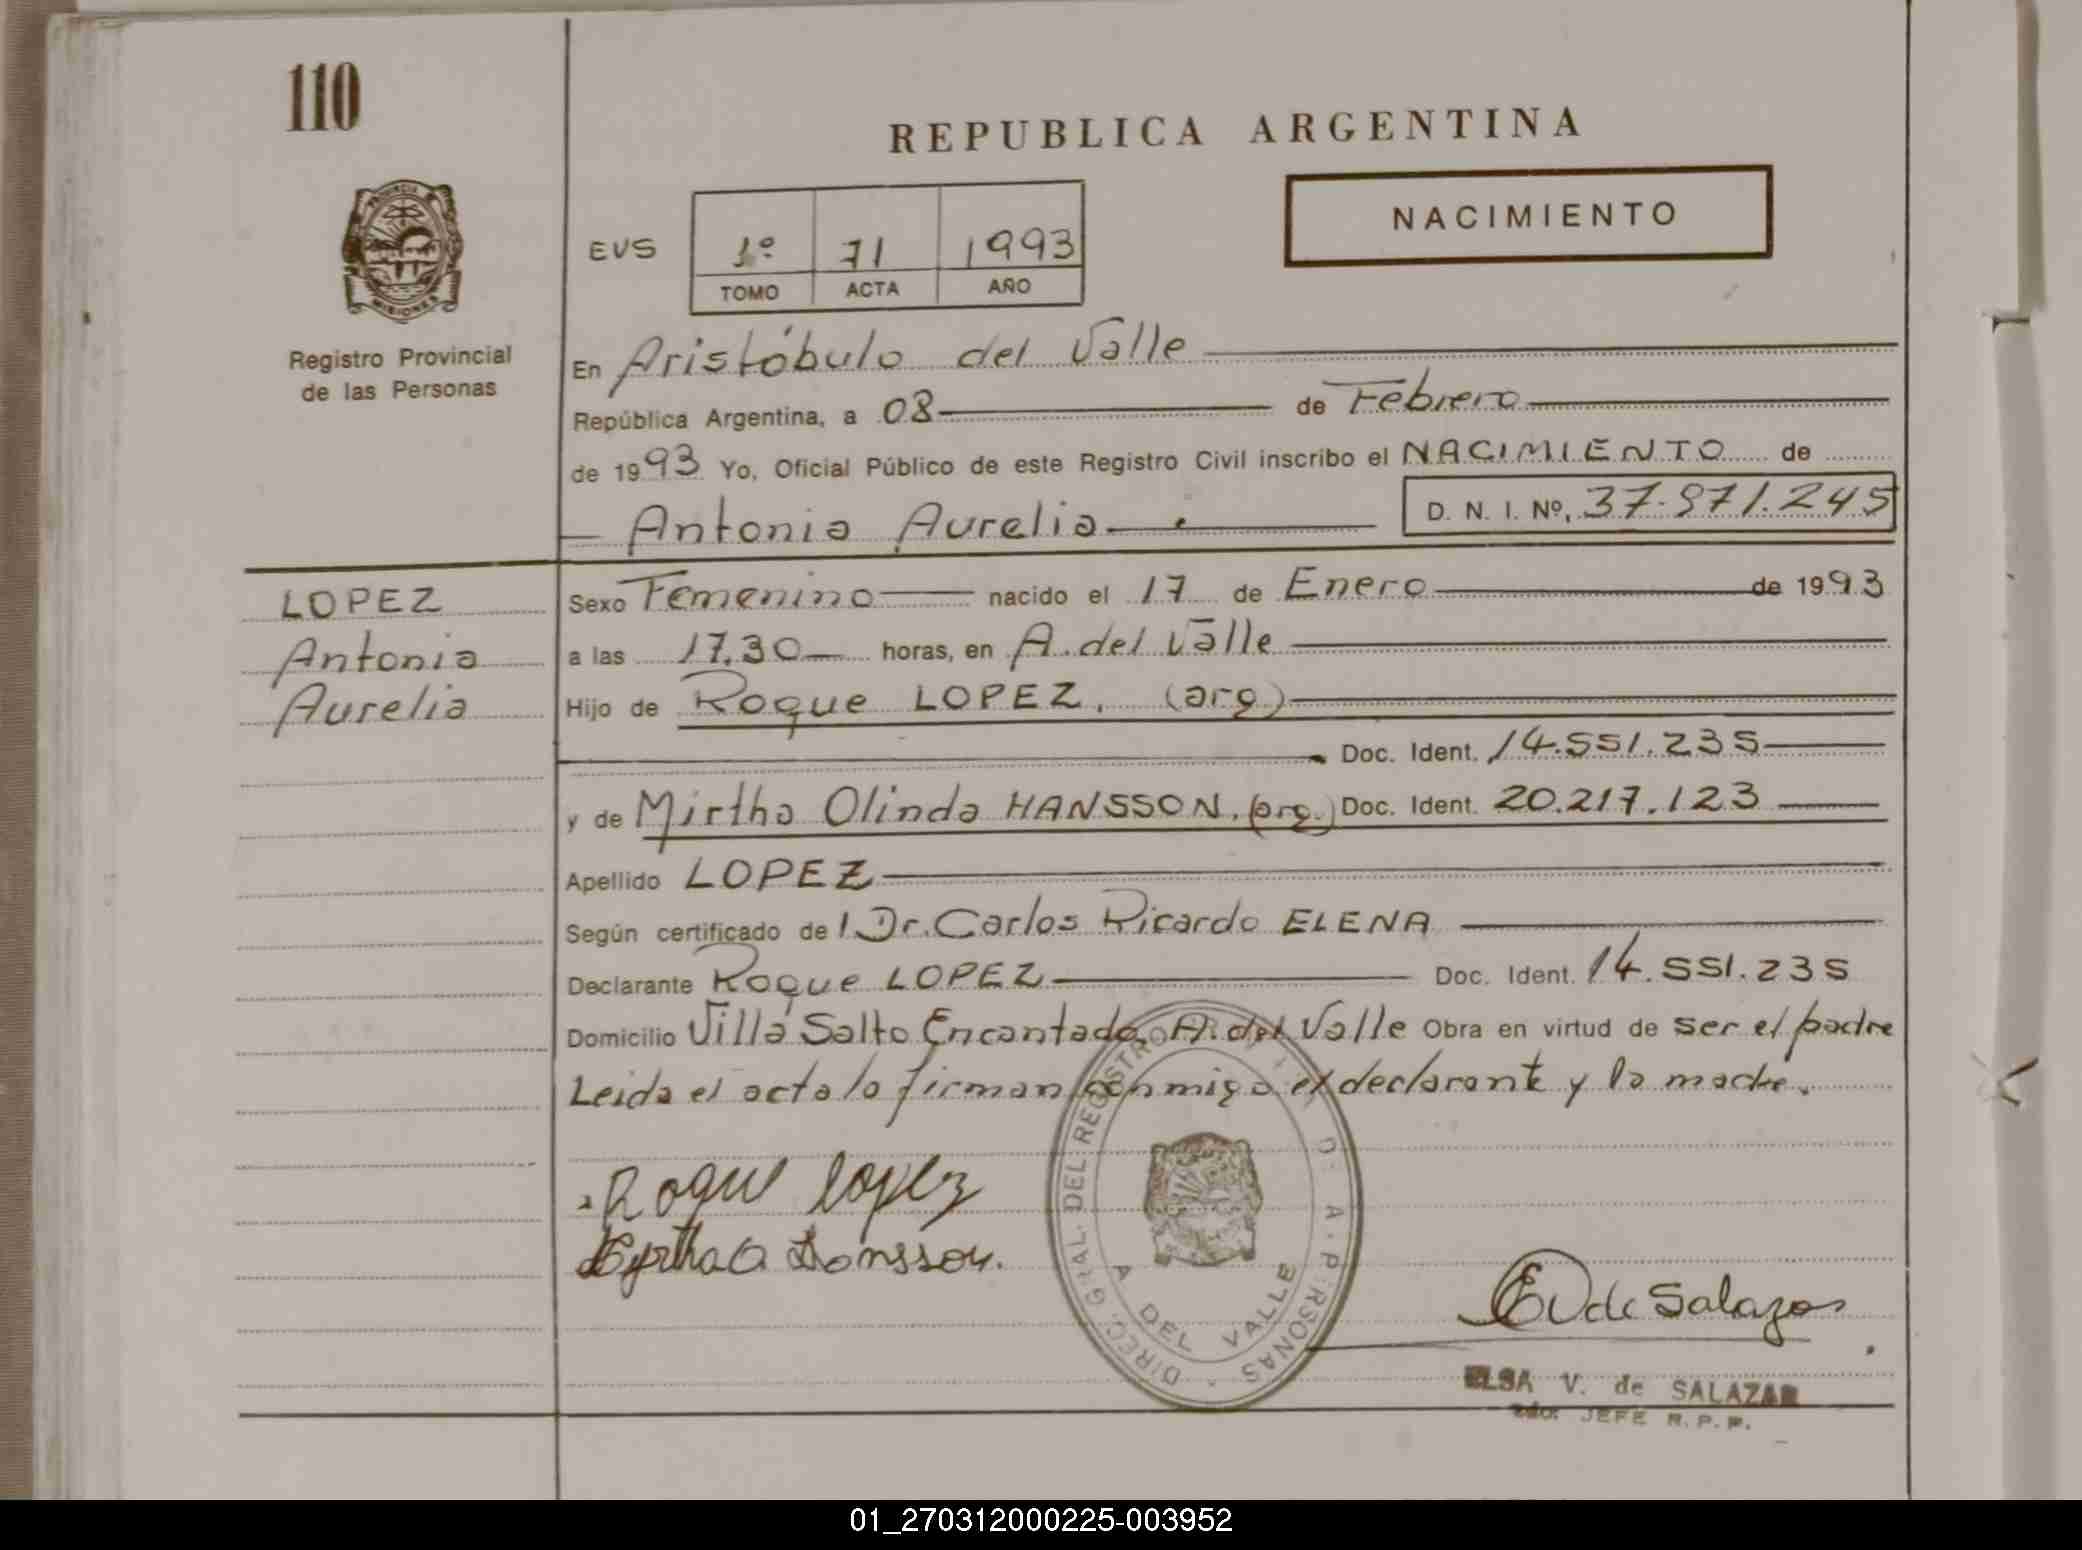 110
REPUBLICA ARGENTINA
PROVINCIA
MISIONES
NACIMIENTO
EVS
1º 71 1993
TOMO ACTA AÑO
Registro Provincial
de las Personas
En Aristóbulo del Valle
República Argentina, a 08 de Febrero
de 1993 Yo, Oficial Público de este Registro Civil inscribo el NACIMIENTO de
Antonia Aurelia D. N. I. Nº, 37.971.245
LOPEZ
Antonia
Aurelia
Sexo Femenino nacido el 17 de Enero de 1993
a las 17,30 horas, en A. del Valle
Hijo de Roque LOPEZ, (arg)
Doc. Ident. 14.551.235
y de Mirtha Olinda HANSSON, (arg.) Doc. Ident. 20.217.123
Apellido LOPEZ
Según certificado de l Dr. Carlos Ricardo ELENA
Declarante Roque LOPEZ Doc. Ident. 14.551.235
Domicilio Villa Salto Encantado, A. del Valle Obra en virtud de ser el padre
Leida el acta lo firman conmigo el declarante y la madre.
Roque lopez
O. Hansson.
DIREC. GRAL. DEL REGISTRO
A DEL VALLE
EV de Salazar
ELSA V. de SALAZAR
JEFE R.P.P.
01_270312000225-003952